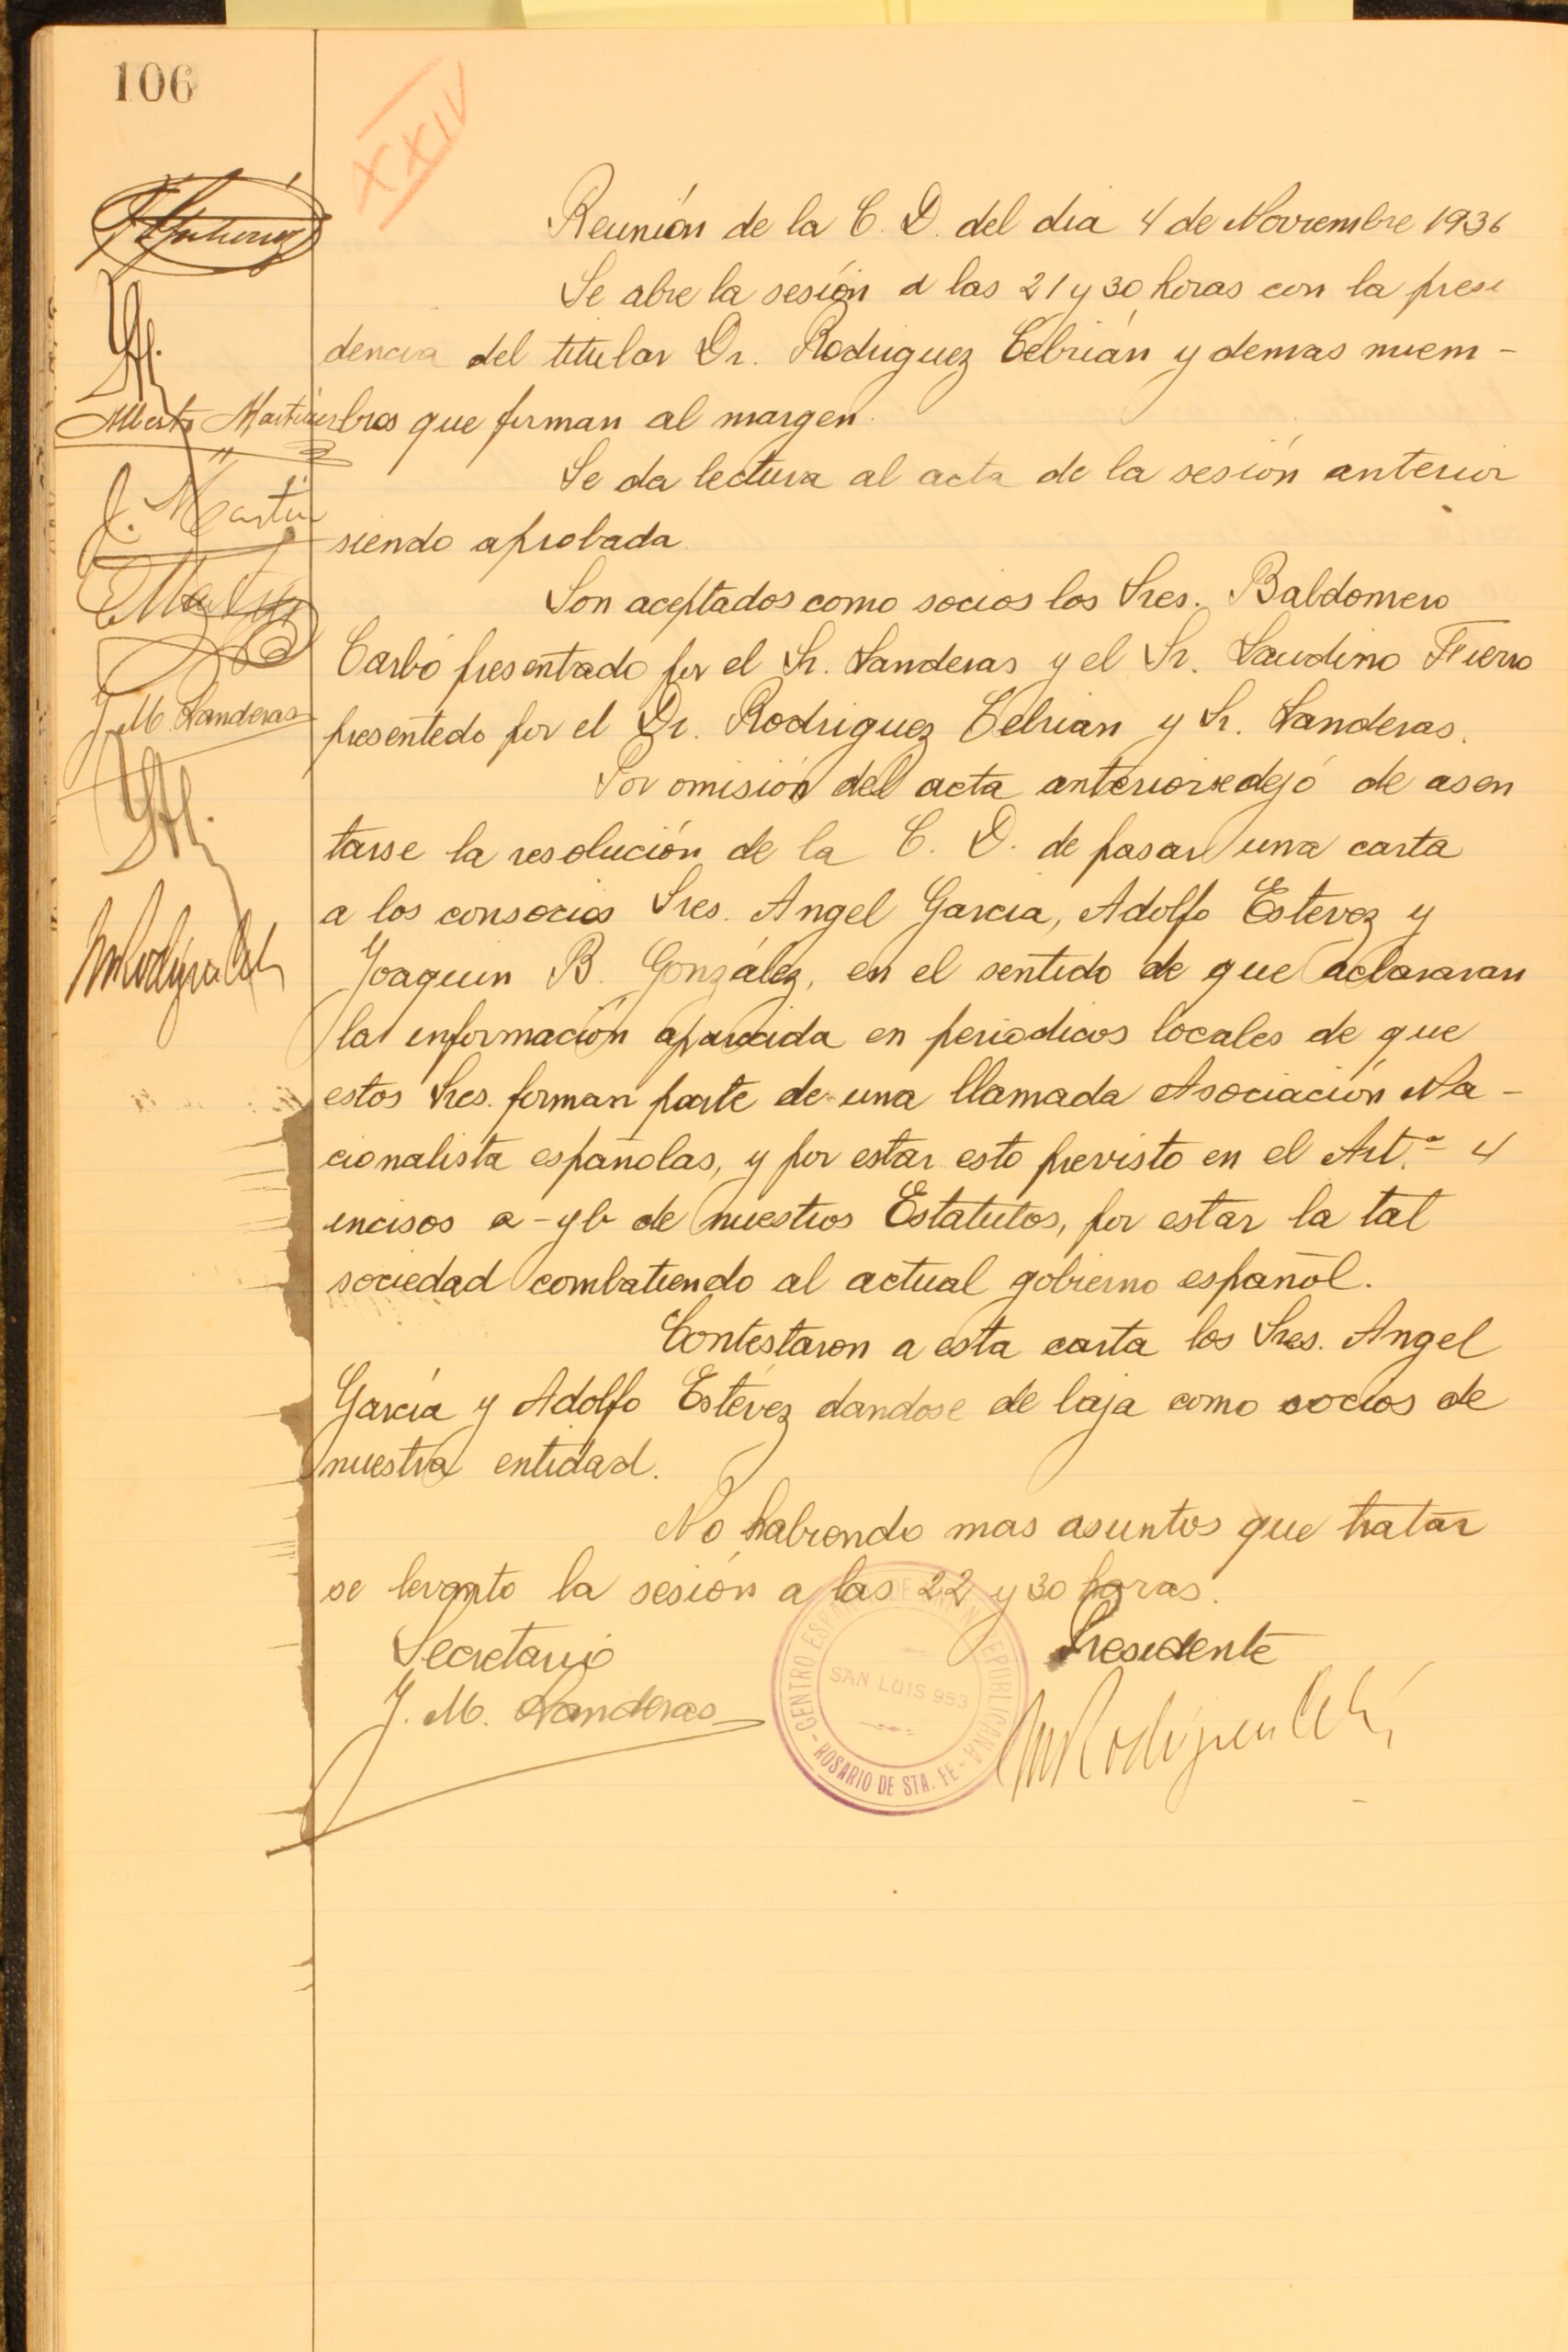 106
XXIV
Reunión de la C. D. del dia 4 de Noviembre 1936
Se abre la sesión a las 21 y 30 horas con la presi
dencia del titular Dr. Rodriguez Cebrián y demas miem-
Alberto Martinez
bros que firman al margen.
Se da lectura al acta de la sesión anterior
J. Martin
siendo aprobada.
Son aceptados como socios los Sres. Baldomero
Carbó presentado por el Sr. Landeras y el Sr. Laudino Fierro
J. M. Landeras
presentedo por el Dr. Rodriguez Cebrian y Sr. Landeras.
Por omisión del acta anterior se dejó de asen
tarse la resolución de la C. D. de pasar una carta
a los consocios Sres. Angel Garcia, Adolfo Estevez y
Joaquin B. González, en el sentido de que aclararan
la información aparecida en periodicos locales de que
estos Sres. forman parte de una llamada Asociación Na-
cionalista españolas, y por estar esto previsto en el Art.º 4
incisos a - y b de nuestros Estatutos, por estar la tal
sociedad combatiendo al actual gobierno español.
Contestaron a esta carta los Sres. Angel
García y Adolfo Estévez dandose de baja como socios de
nuestra entidad.
No habiendo mas asuntos que tratar
se levanto la sesión a las 22 y 30 horas.
Secretario
Presidente
J. M. Landeras
CENTRO ESPAÑOL DE UNIÓN REPUBLICANA
SAN LUIS 953
- ROSARIO DE STA. FE -